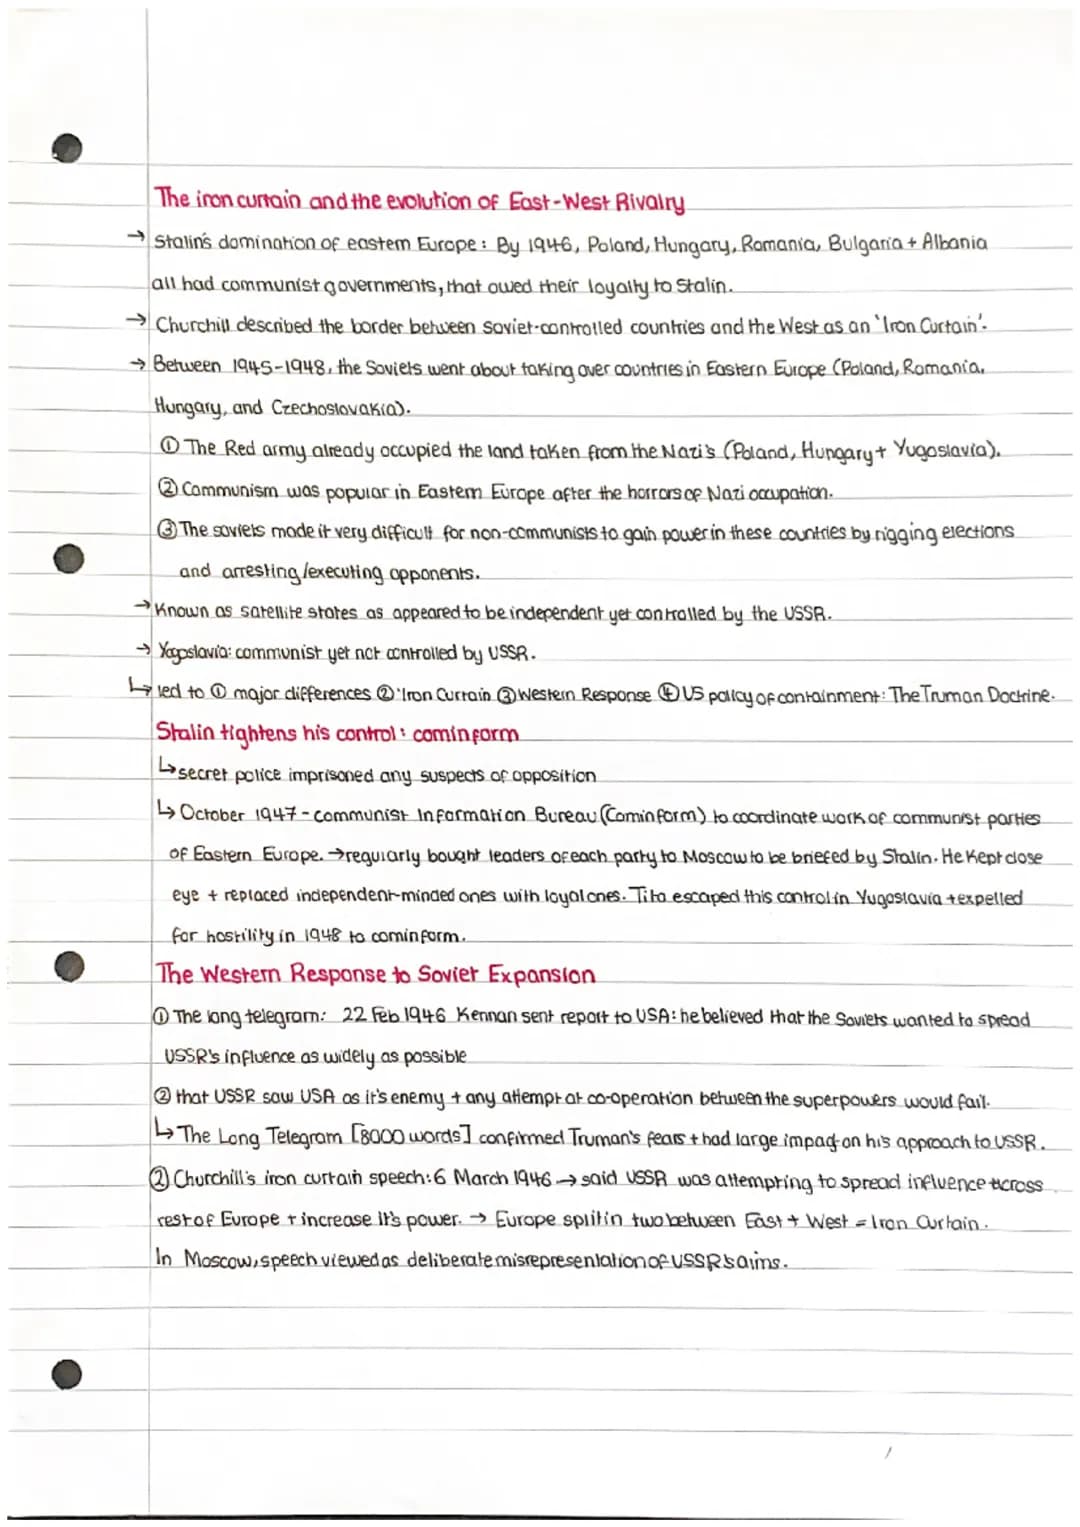 The iron curtain and the evolution of East-West Rivalry
→ Stalin's domination of eastern Europe: By 1946, Poland, Hungary, Romania, Bulgaria + Albania
all had communist governments, that owed their loyalty to Stalin.
→ Churchill described the border between soviet-controlled countries and the West as an 'Iron Curtain'.
→ Between 1945-1948, the Soviets went about taking over countries in Eastern Europe (Poland, Romania,
Hungary, and Czechoslovakia).
① The Red army already occupied the land taken from the Nazi's (Poland, Hungary + Yugoslavia).
② Communism was popular in Eastern Europe after the horrors of Nazi occupation.
③ The soviets made it very difficult for non-communists to gain power in these countries by rigging elections
and arresting/executing opponents.
→ Known as satellite states as appeared to be independent yet controlled by the USSR.
→ Yogoslavia: communist yet not controlled by USSR.
↳ led to ① major differences ② 'Iron Curtain ③ Western Response ④ US policy of containment: The Truman Doctrine.
Stalin tightens his control: cominform
↳ secret police imprisoned any suspects of opposition
↳ October 1947 - communist Information Bureau (Cominform) to coordinate work of communist parties
of Eastern Europe. → regularly bought leaders of each party to Moscow to be briefed by Stalin. He Kept close
eye + replaced independent-minded ones with loyal ones. Tito escaped this control in Yugoslavia + expelled
for hostility in 1948 to cominform.
The Western Response to Soviet Expansion
① The long telegram: 22 Feb 1946 Kennan sent report to USA: he believed that the Soviets wanted to spread
USSR's influence as widely as possible
② that USSR saw USA as it's enemy + any attempt at co-operation between the superpowers would fail.
↳ The Long Telegram [8000 words] confirmed Truman's fears + had large impact on his approach to USSR.
② Churchill's iron curtain speech: 6 March 1946 → said USSR was attempting to spread influence across
rest of Europe + increase it's power. → Europe split in two between East + West = Iron Curtain.
In Moscow, speech viewed as deliberate misrepresentation of USSR's aims.